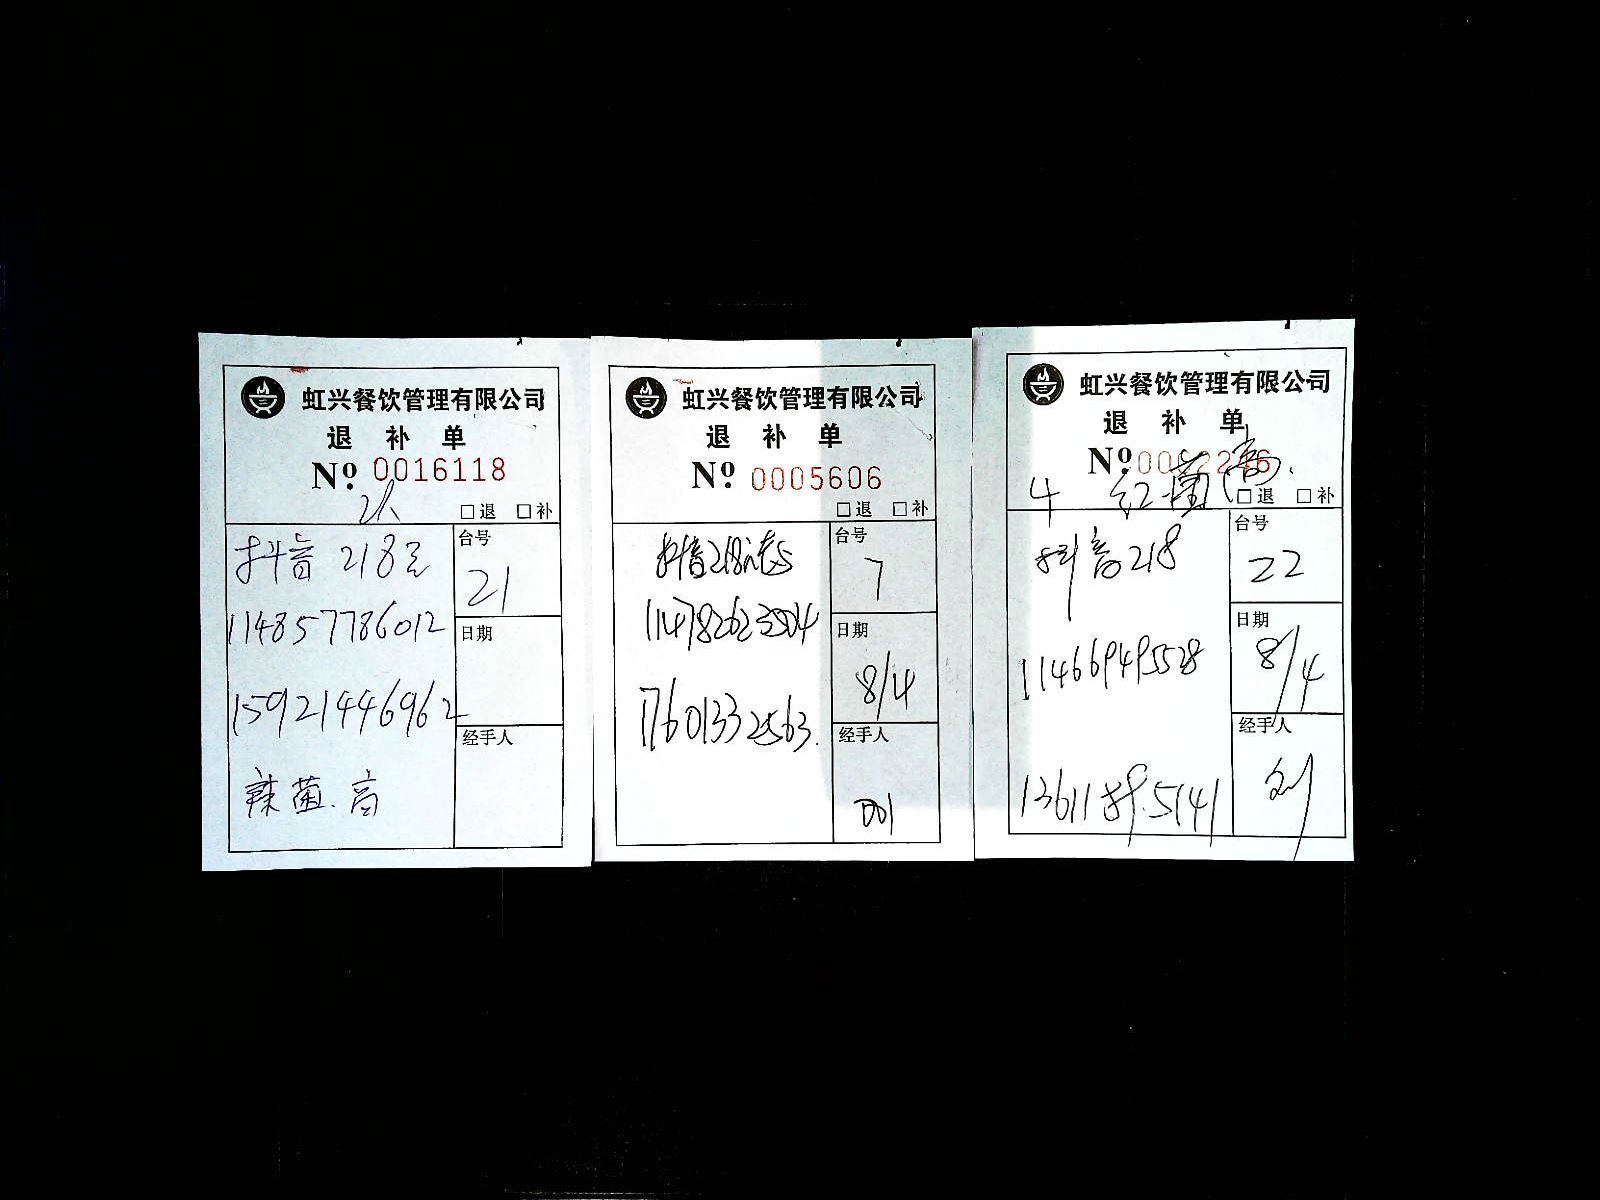 虹兴餐饮管理有限公司
退 补 单
Nº. 0016118
2人
□退 □补
抖音 218元
114857786012
15921446962
辣菌.高
台号
21
日期
经手人
虹兴餐饮管理有限公司
退 补 单
Nº. 0005606
□退 □补
抖音218元
114782623504
17601332563.
台号
7
日期
8/4
经手人
001
虹兴餐饮管理有限公司
退 补 单
Nº.
4 红菌
□退 □补
抖音218
114669495528
台号
22
日期
8/4
经手人
刘